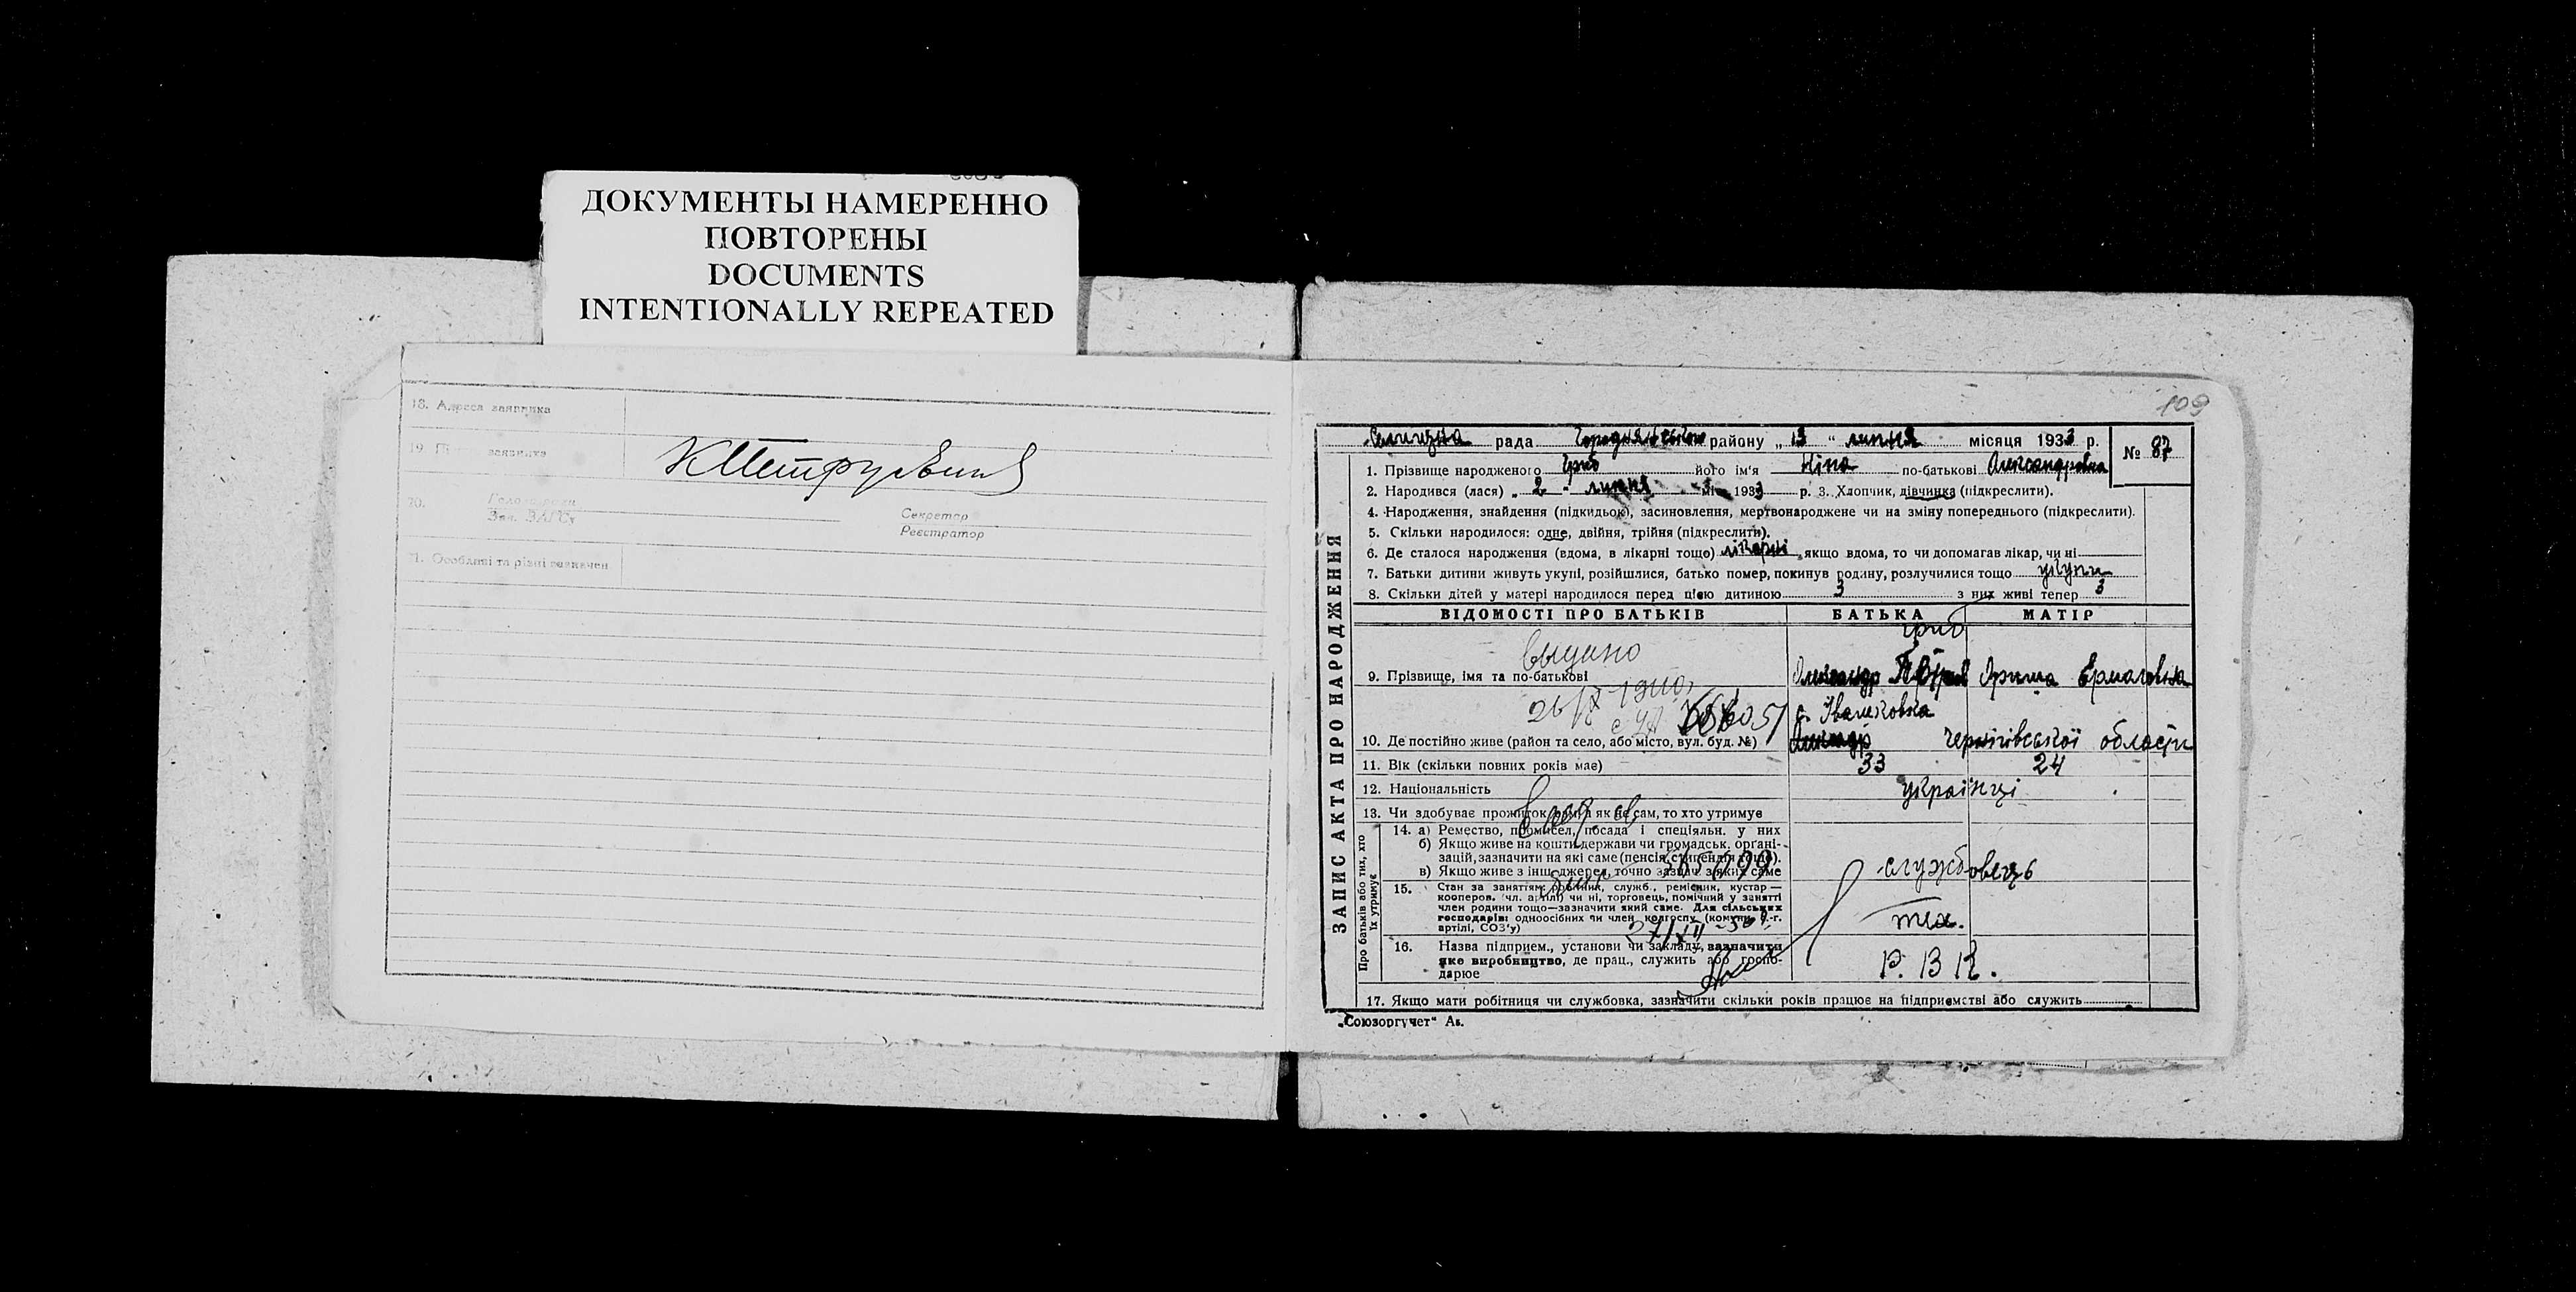 ДОКУМЕНТЫ НАМЕРЕННО
ПОВТОРЕНЫ
DOCUMENTS
INTENTIONALLY REPEATED
18. Адреса заявника
19. заявника
20. Голова ради
Зав. ЗАГС'у
Секретар
Реєстратор
21. Особливі та різні зазначен.
109
Селищна рада Городнянського району „ 13 “ липня місяця 1933 р.
№ 87
ЗАПИС АКТА ПРО НАРОДЖЕННЯ
1. Прізвище народженого Гриб його ім'я Ніна по-батькові Александровна
2. Народився (лася) „ 2 “ липня 1933 р. 3. Хлопчик, дівчинка (підкреслити).
4. Народження, знайдення (підкидьок), засиновлення, мертвонароджене чи на зміну попереднього (підкреслити).
5. Скільки народилося: одне, двійня, трійня (підкреслити).
6. Де сталося народження (вдома, в лікарні тощо) лікарні якщо вдома, то чи допомагав лікар, чи ні
7. Батьки дитини живуть укупі, розійшлися, батько помер, покинув родину, розлучилися тощо укупи
8. Скільки дітей у матері народилося перед цією дитиною 3 з них живі тепер 3
ВІДОМОСТІ ПРО БАТЬКІВ БАТЬКА МАТІР
Гриб
выдано
9. Прізвище, імя та по-батькові Олександр Ярина Ермаговна
с. Івашковка
10. Де постійно живе (район та село, або місто, вул. буд. №) Чернігівської області
11. Вік (скільки повних років має) 33 24
12. Національність українці
13. Чи здобуває прожиток сам, а як не сам, то хто утримує
Про батьків або тих, хто їх утримує
14. а) Ремество, промисел, посада і спеціяльн. у них
б) Якщо живе на кошти держави чи громадськ. органі-
зацій, зазначити на які саме (пенсія, стипендія тощо).
в) Якщо живе з інш. джерел, точно зазнач. з яких саме
службовець
15. Стан за заняттям: робітник, служб., ремісник, кустар —
кооперов. (чл. артілі) чи ні, торговець, помічний у занятті
член родини тощо—зазначити який саме. Для сільських
господарів: одноосібних чи член колгоспу (комуни, с.-г.
артілі, СОЗ'у)
тех.
16. Назва підприєм., установи чи закладу, зазначити
яке виробництво, де прац., служить або госпо-
дарює
Р. В К.
17. Якщо мати робітниця чи службовка, зазначити скільки років працює на підприємстві або служить
„Союзоргучет“ Ав.